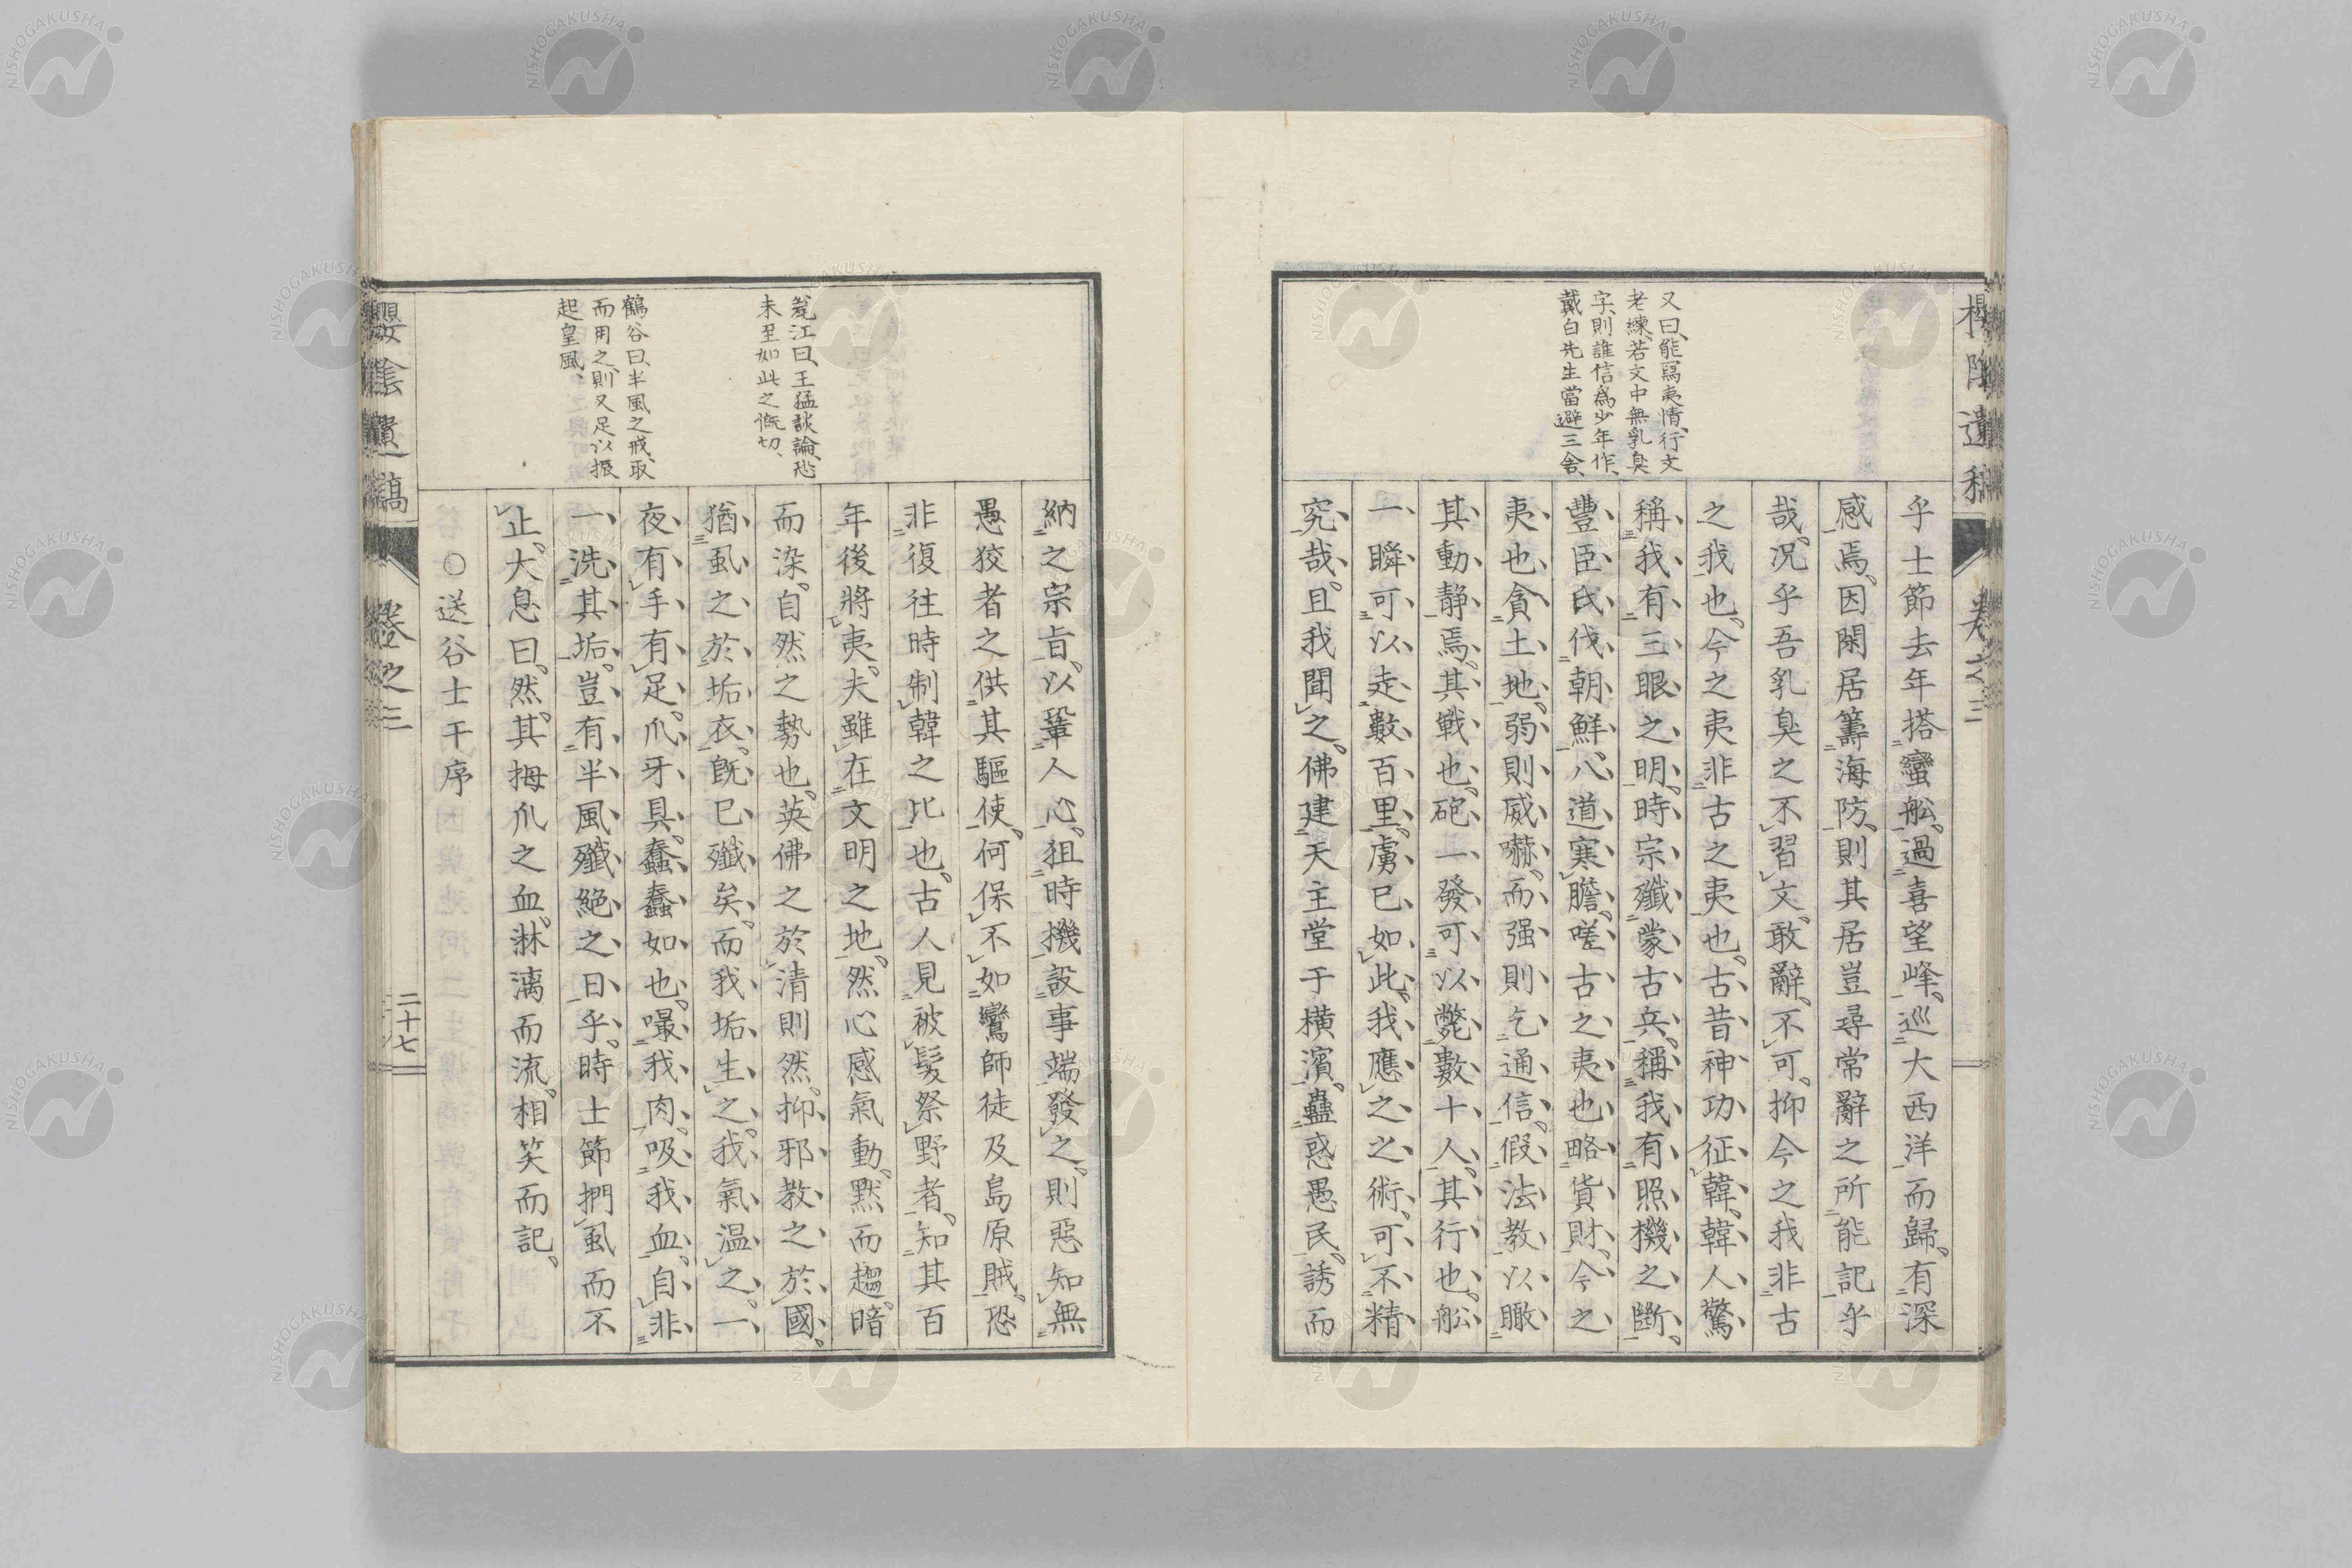 又曰、能寫夷情、行文
老練、若文中無乳臭
字、則誰信爲少年作、
戴白先生當避三舍、
乎士節去年搭蠻船、過喜望峰、巡大西洋而歸、有深
感焉、因閑居籌海防、則其居豈尋常辭之所能記乎
哉、况乎吾乳臭之不習文、敢辭、不可、抑今之我非古
之我也、今之夷非古之夷也、古昔神功征韓、韓人驚
稱我有三眼之明、時宗殲蒙古兵、稱我有照機之斷、
豐臣氏伐朝鮮、八道寒膽、嗟古之夷也略貨財、今之
夷也貪土地、弱則威嚇、而强則乞通信、假法教以瞰
其動靜焉、其戰也、砲一發可以斃數十人、其行也、船
一瞬可以走數百里、虜已如此、我應之之術、可不精
究哉、且我聞之、佛建天主堂于橫濱、蠱惑愚民、誘而
櫻陰遺稿 卷之三
甕江曰、王猛談論、恐
未至如此之慨切、
鶴谷曰、半風之戒、取
而用之、則又足以振
起皇風、
納之宗旨、以鞏人心、狙時機設事端發之、則惡知無
愚狡者之供其驅使、何保不如鸞師徒及島原賊、恐
非復往時制韓之比也、古人見被髮祭野者、知其百
年後將夷、夫雖在文明之地、然心感氣動、默而趨、暗
而染、自然之勢也、英佛之於清則然、抑邪教之於國、
猶虱之於垢衣、既已殲矣、而我垢生之、我氣温之、一
夜有手有足、爪牙具、蠢蠢如也、嘬我肉、吸我血、自非
一洗其垢、豈有半風殲絶之日乎、時士節捫虱而不
止、大息曰、然、其拇爪之血、淋漓而流、相笑而記、
○送谷士干序
櫻陰遺稿 卷之三 二十七